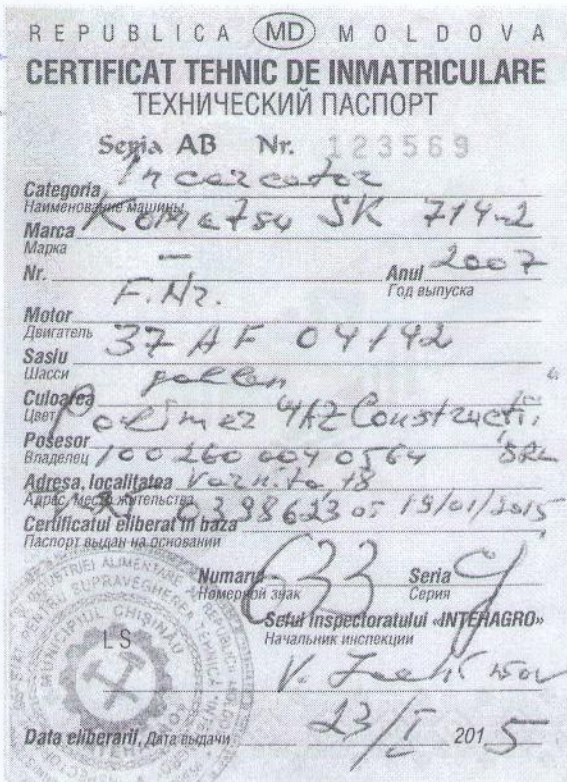 REPUBLICA MD MOLDOVA
CERTIFICAT TEHNIC DE INMATRICULARE
ТЕХНИЧЕСКИЙ ПАСПОРТ
Seria AB Nr. 123569
Categoria Incarcator
Наименование машины
Marca Komatsu SK 714-2
Марка
Nr. — Anul 2007
Год выпуска
F.Nr.
Motor
Двигатель 37 AF 04142
Sasiu
Шасси galben
Culoarea
Цвет Polimer Gaz Constructii
Posesor
Владелец 1002600040564 SRL
Adresa, localitatea Varnita, 18
Адрес, место жительства
0398623 от 19/01/2015
Certificatul eliberat in baza
Паспорт выдан на основании
Numarul 633 Seria
Номерной знак Серия
Seful inspectoratului «INTEHAGRO»
Начальник инспекции
LS
MUNICIPIUL CHIŞINĂU
V.
Data eliberarii, Дата выдачи 23/I 2015